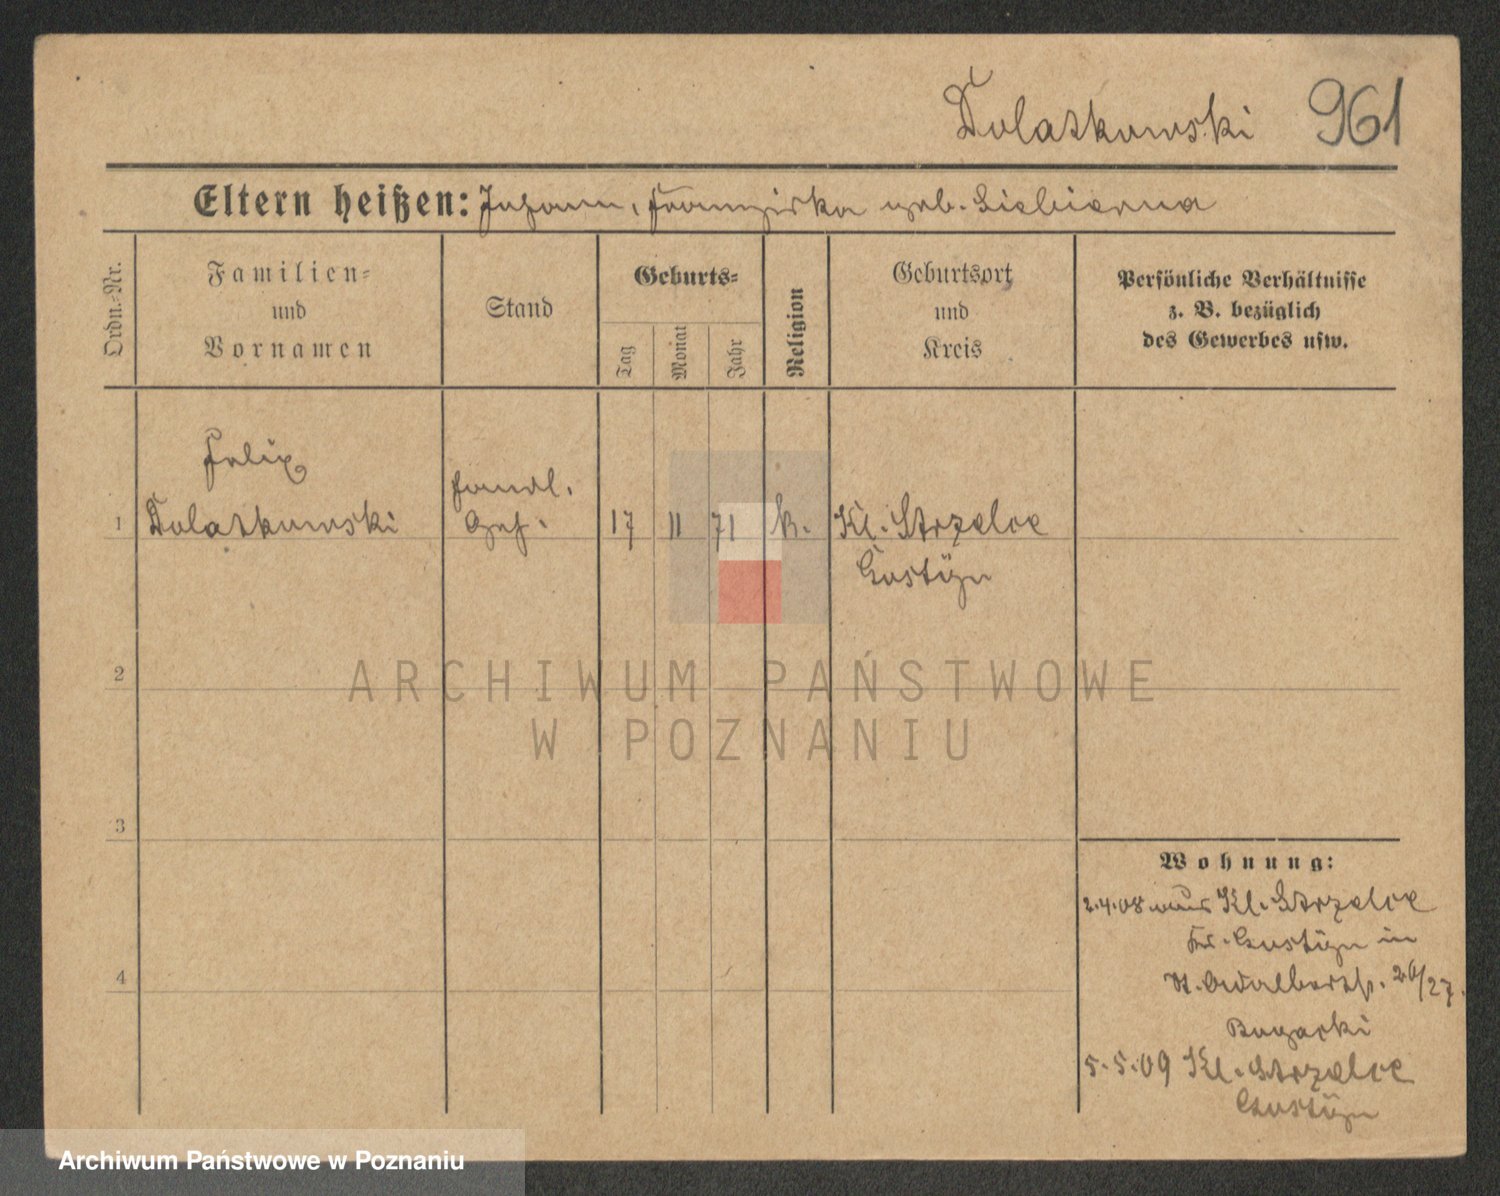 Dolatkowski 961
Eltern heißen: Johann, Franziska geb.
Ordn.=Nr.
Familien=
und
Vornamen
Stand
Geburts=
Tag
Monat
Jahr
Religion
Geburtsort
und
Kreis
Persönliche Verhältnisse
z. B. bezüglich
des Gewerbes usw.
Felix
1 Dolatkowski
Handl.
Geh.
17 11 71 k. Kl. Strzelce
Gostÿn
2
3
4
Wohnung:
2.4.08 aus Kl. Strzelce
Kr. Gostÿn in
St. Adalbertstr. 26/27.
5.5.09 Kl. Strzelce
Gostÿn
ARCHIWUM PAŃSTWOWE
W POZNANIU
Archiwum Państwowe w Poznaniu